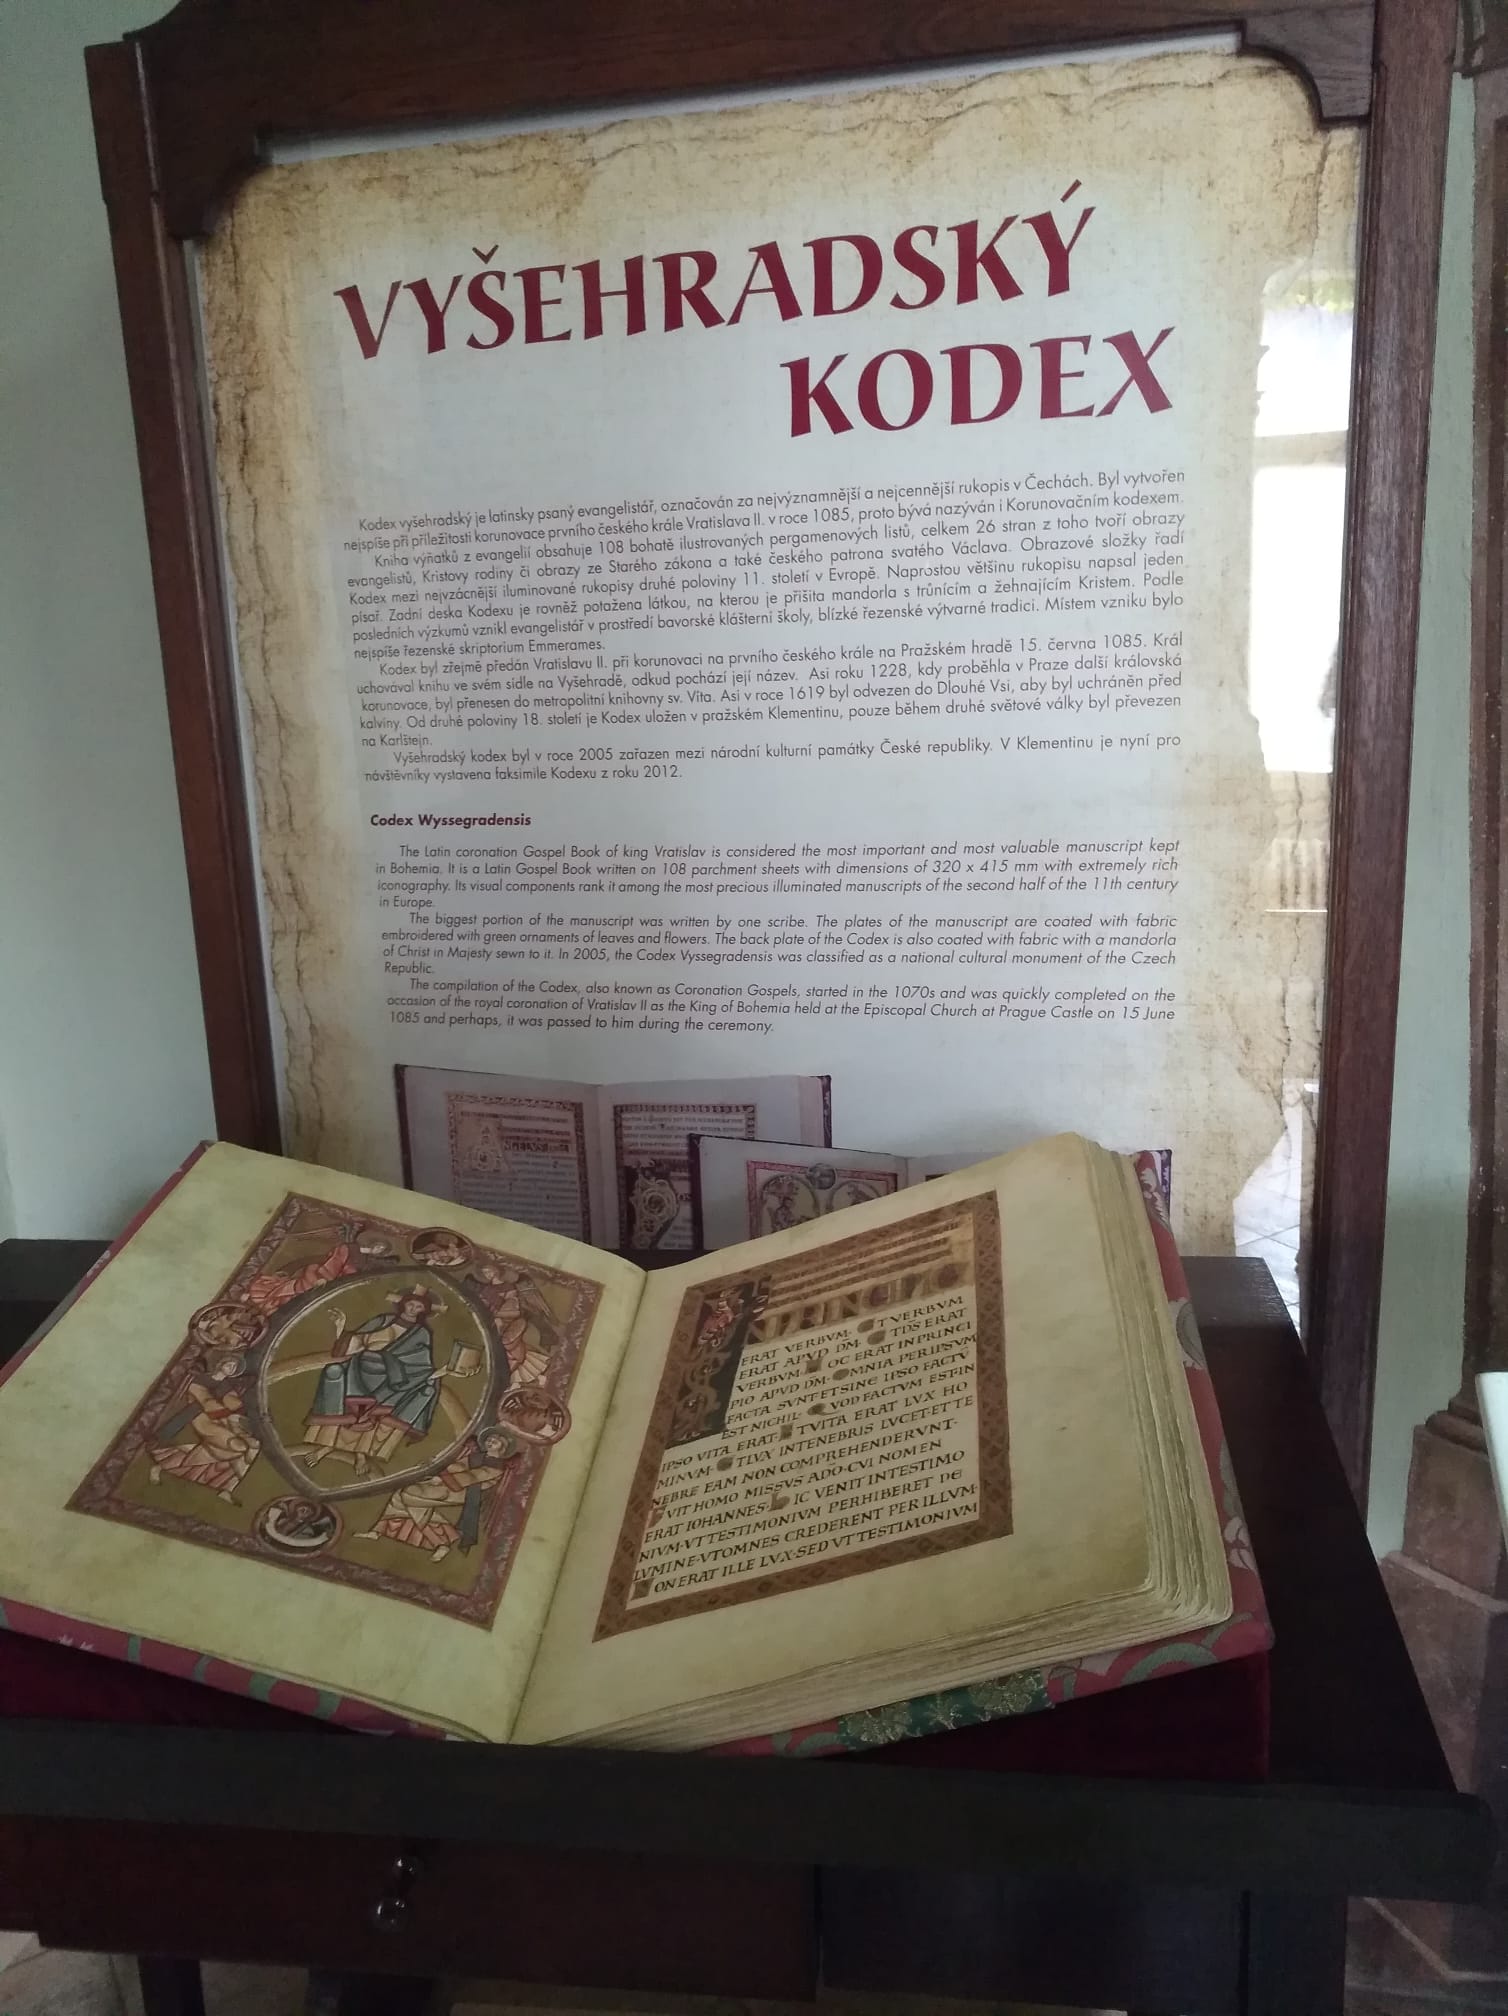 VYŠEHRADSKÝ
KODEX
Kodex vyšehradský je latinsky psaný evangelistář, označován za nejvýznamnější a nejcennější rukopis v Čechách. Byl vytvořen
nejspíše při příležitosti korunovace prvního českého krále Vratislava II. v roce 1085, proto bývá nazýván i Korunovačním kodexem.
Kniha výňatků z evangelií obsahuje 108 bohatě ilustrovaných pergamenových listů, celkem 26 stran z toho tvoří obrazy
evangelistů, Kristovy rodiny či obrazy ze Starého zákona a také českého patrona svatého Václava. Obrazové složky řadí
Kodex mezi nejvzácnější iluminované rukopisy druhé poloviny 11. století v Evropě. Naprostou většinu rukopisu napsal jeden
písař. Zadní deska Kodexu je rovněž potažena látkou, na kterou je přišita mandorla s trůnícím a žehnajícím Kristem. Podle
posledních výzkumů vznikl evangelistář v prostředí bavorské klášterní školy, blízké řezenské výtvarné tradici. Místem vzniku bylo
nejspíše řezenské skriptorium Emmerames.
Kodex byl zřejmě předán Vratislavu II. při korunovaci na prvního českého krále na Pražském hradě 15. června 1085. Král
uchovával knihu ve svém sídle na Vyšehradě, odkud pochází její název. Asi roku 1228, kdy proběhla v Praze další královská
korunovace, byl přenesen do metropolitní knihovny sv. Víta. Asi v roce 1619 byl odvezen do Dlouhé Vsi, aby byl uchráněn před
kalviny. Od druhé poloviny 18. století je Kodex uložen v pražském Klementinu, pouze během druhé světové války byl převezen
na Karlštejn.
Vyšehradský kodex byl v roce 2005 zařazen mezi národní kulturní památky České republiky. V Klementinu je nyní pro
návštěvníky vystavena faksimile Kodexu z roku 2012.
Codex Wyssegradensis
The Latin coronation Gospel Book of king Vratislav is considered the most important and most valuable manuscript kept
in Bohemia. It is a Latin Gospel Book written on 108 parchment sheets with dimensions of 320 x 415 mm with extremely rich
iconography. Its visual components rank it among the most precious illuminated manuscripts of the second half of the 11th century
in Europe.
The biggest portion of the manuscript was written by one scribe. The plates of the manuscript are coated with fabric
embroidered with green ornaments of leaves and flowers. The back plate of the Codex is also coated with fabric with a mandorla
of Christ in Majesty sewn to it. In 2005, the Codex Vyssegradensis was classified as a national cultural monument of the Czech
Republic.
The compilation of the Codex, also known as Coronation Gospels, started in the 1070s and was quickly completed on the
occasion of the royal coronation of Vratislav II as the King of Bohemia held at the Episcopal Church at Prague Castle on 15 June
1085 and perhaps, it was passed to him during the ceremony.
NPRINCIPIO
ERAT VERBVM· ET VERBVM
ERAT APVD DM̄· ET D̄S ERAT
VERBVM· HOC ERAT INPRINCI
PIO APVD DM̄· OMNIA PERIPSVM
FACTA SVNT ET SINE IPSO FACTV̄
EST NICHIL· QVOD FACTVM EST·IN
IPSO VITA ERAT· ET VITA ERAT LVX HO
MINVM· ET LVX INTENEBRIS LVCET·ET TE
NEBRE EAM NON COMPREHENDERVNT·
FVIT HOMO MISSVS ADŌ·CVI NOMEN
ERAT IOHANNES· HIC VENIT INTESTIMO
NIVM·VT TESTIMONIVM PERHIBERET DE
LVMINE·VTOMNES CREDERENT PER ILLVM·
NON ERAT ILLE LVX·SED VT TESTIMONIVM